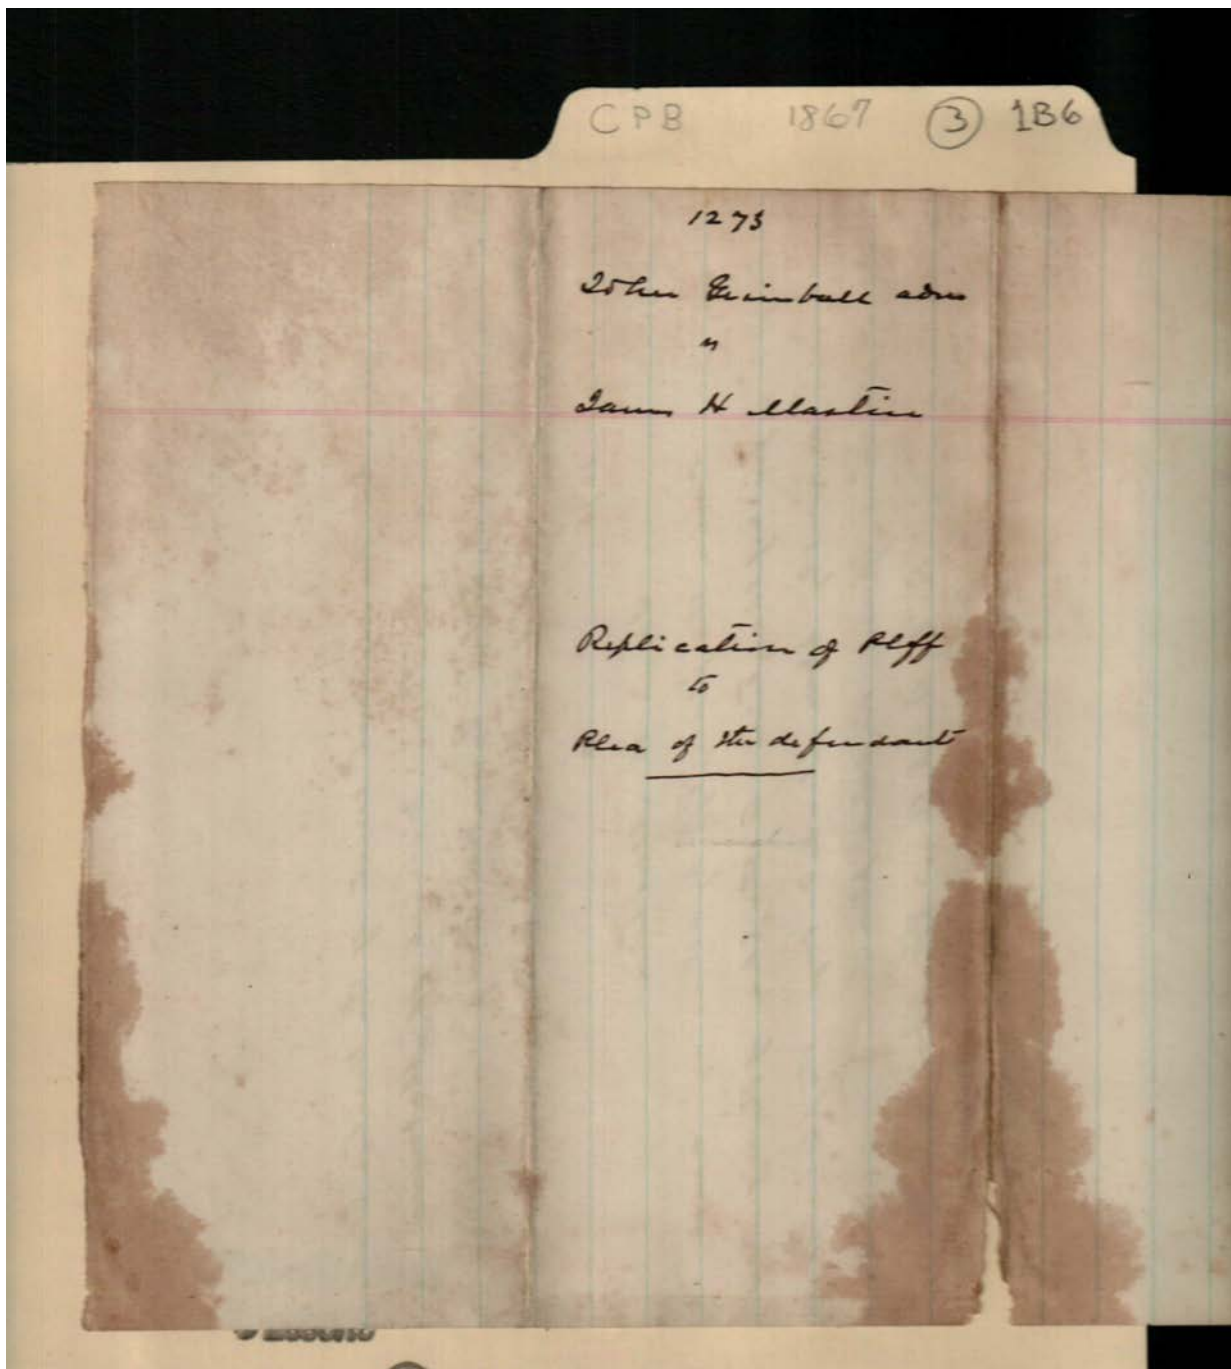 CPB 1867 ③ 1B6
1273
John Grimball adm
vs
James H Martin
Replication of Plff
to
Plea of the defendant